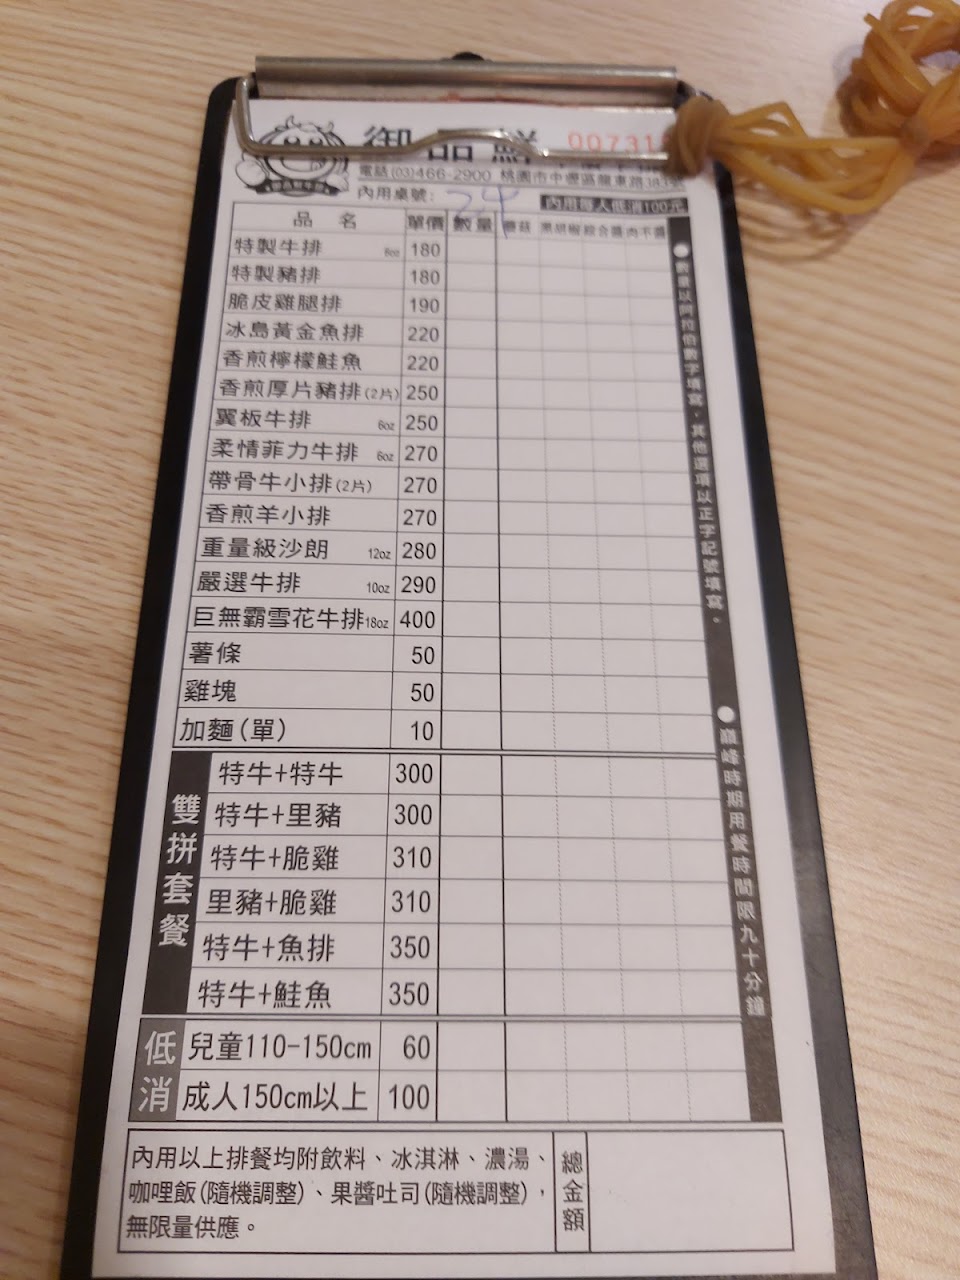 御品鮮
00731
電話(03)466-2900 桃園市中壢區龍東路183號
內用桌號: 24
內用每人低消100元
品名 單價 數量 蘑菇 黑胡椒 綜合醬 肉不醬
特製牛排 6oz 180
特製豬排 180
脆皮雞腿排 190
冰島黃金魚排 220
香煎檸檬鮭魚 220
香煎厚片豬排(2片) 250
翼板牛排 6oz 250
柔情菲力牛排 6oz 270
帶骨牛小排(2片) 270
香煎羊小排 270
重量級沙朗 12oz 280
嚴選牛排 10oz 290
巨無霸雪花牛排18oz 400
薯條 50
雞塊 50
加麵(單) 10
雙拼套餐
特牛+特牛 300
特牛+里豬 300
特牛+脆雞 310
里豬+脆雞 310
特牛+魚排 350
特牛+鮭魚 350
低消
兒童110-150cm 60
成人150cm以上 100
內用以上排餐均附飲料、冰淇淋、濃湯、
咖哩飯(隨機調整)、果醬吐司(隨機調整),
無限量供應。
總金額
●數量以阿拉伯數字填寫,其他選項以正字記號填寫。
●巔峰時期用餐時間限九十分鐘